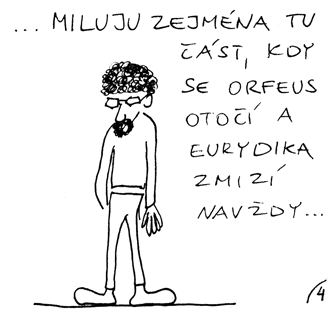 ... MILUJU ZEJMÉNA TU
ČÁST, KDY
SE ORFEUS
OTOČÍ A
EURYDIKA
ZMIZÍ
NAVŽDY...
/4